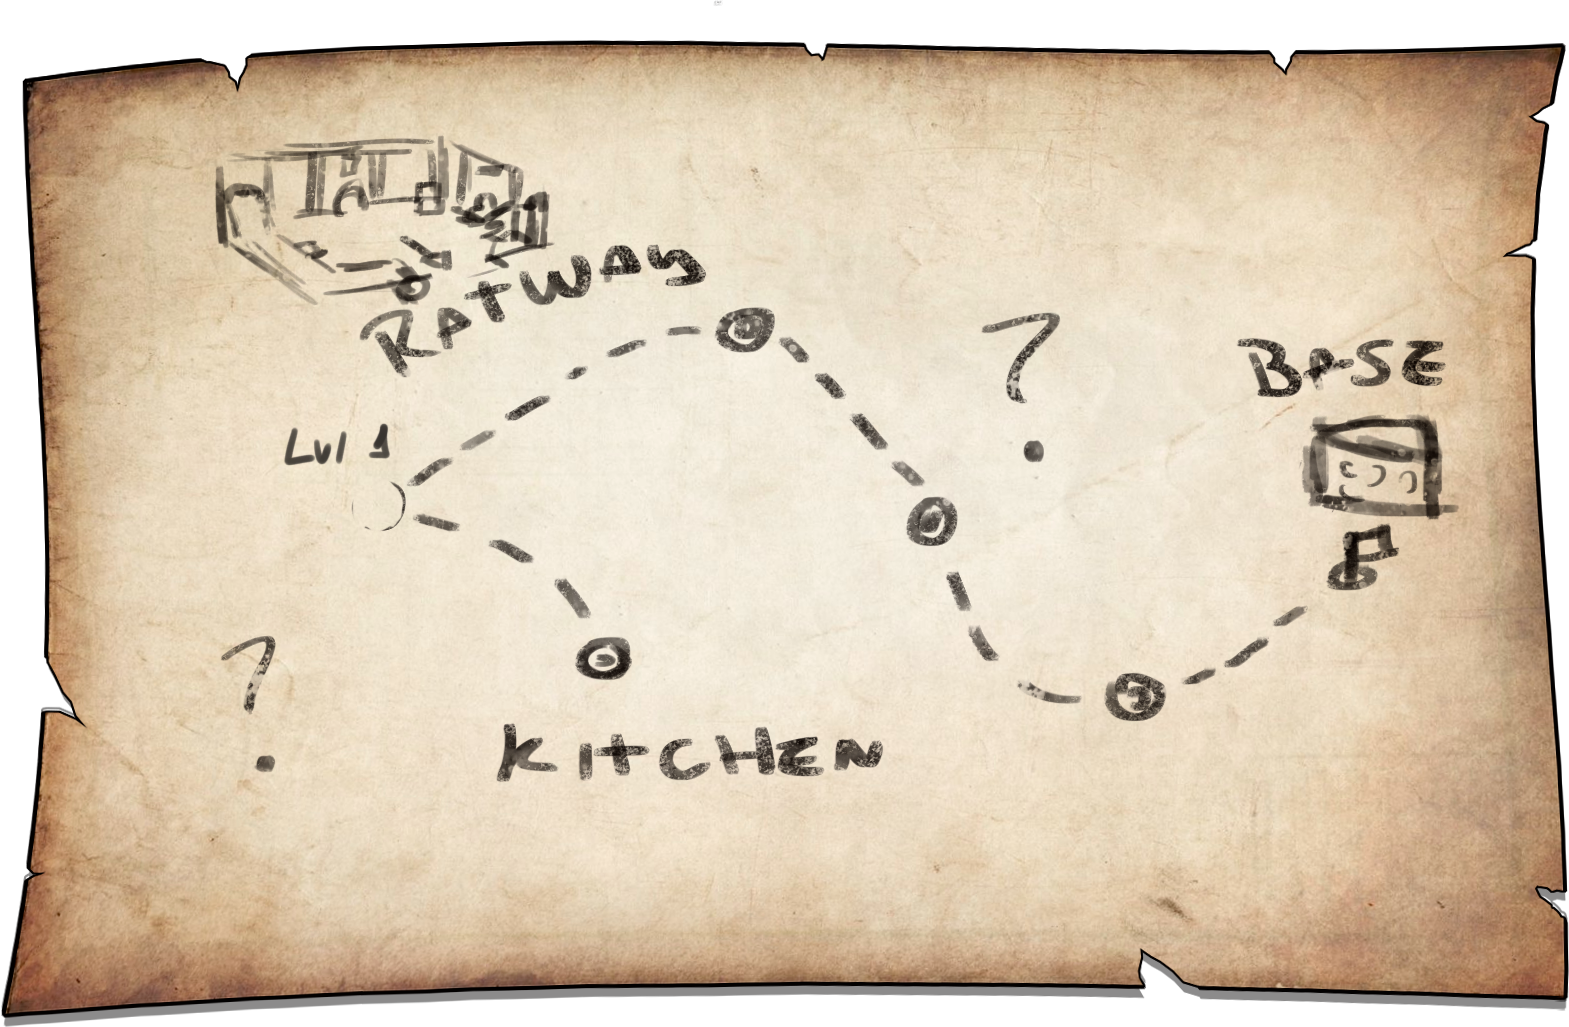 RATWAY
?
BASE
Lvl 1
?
KITCHEN